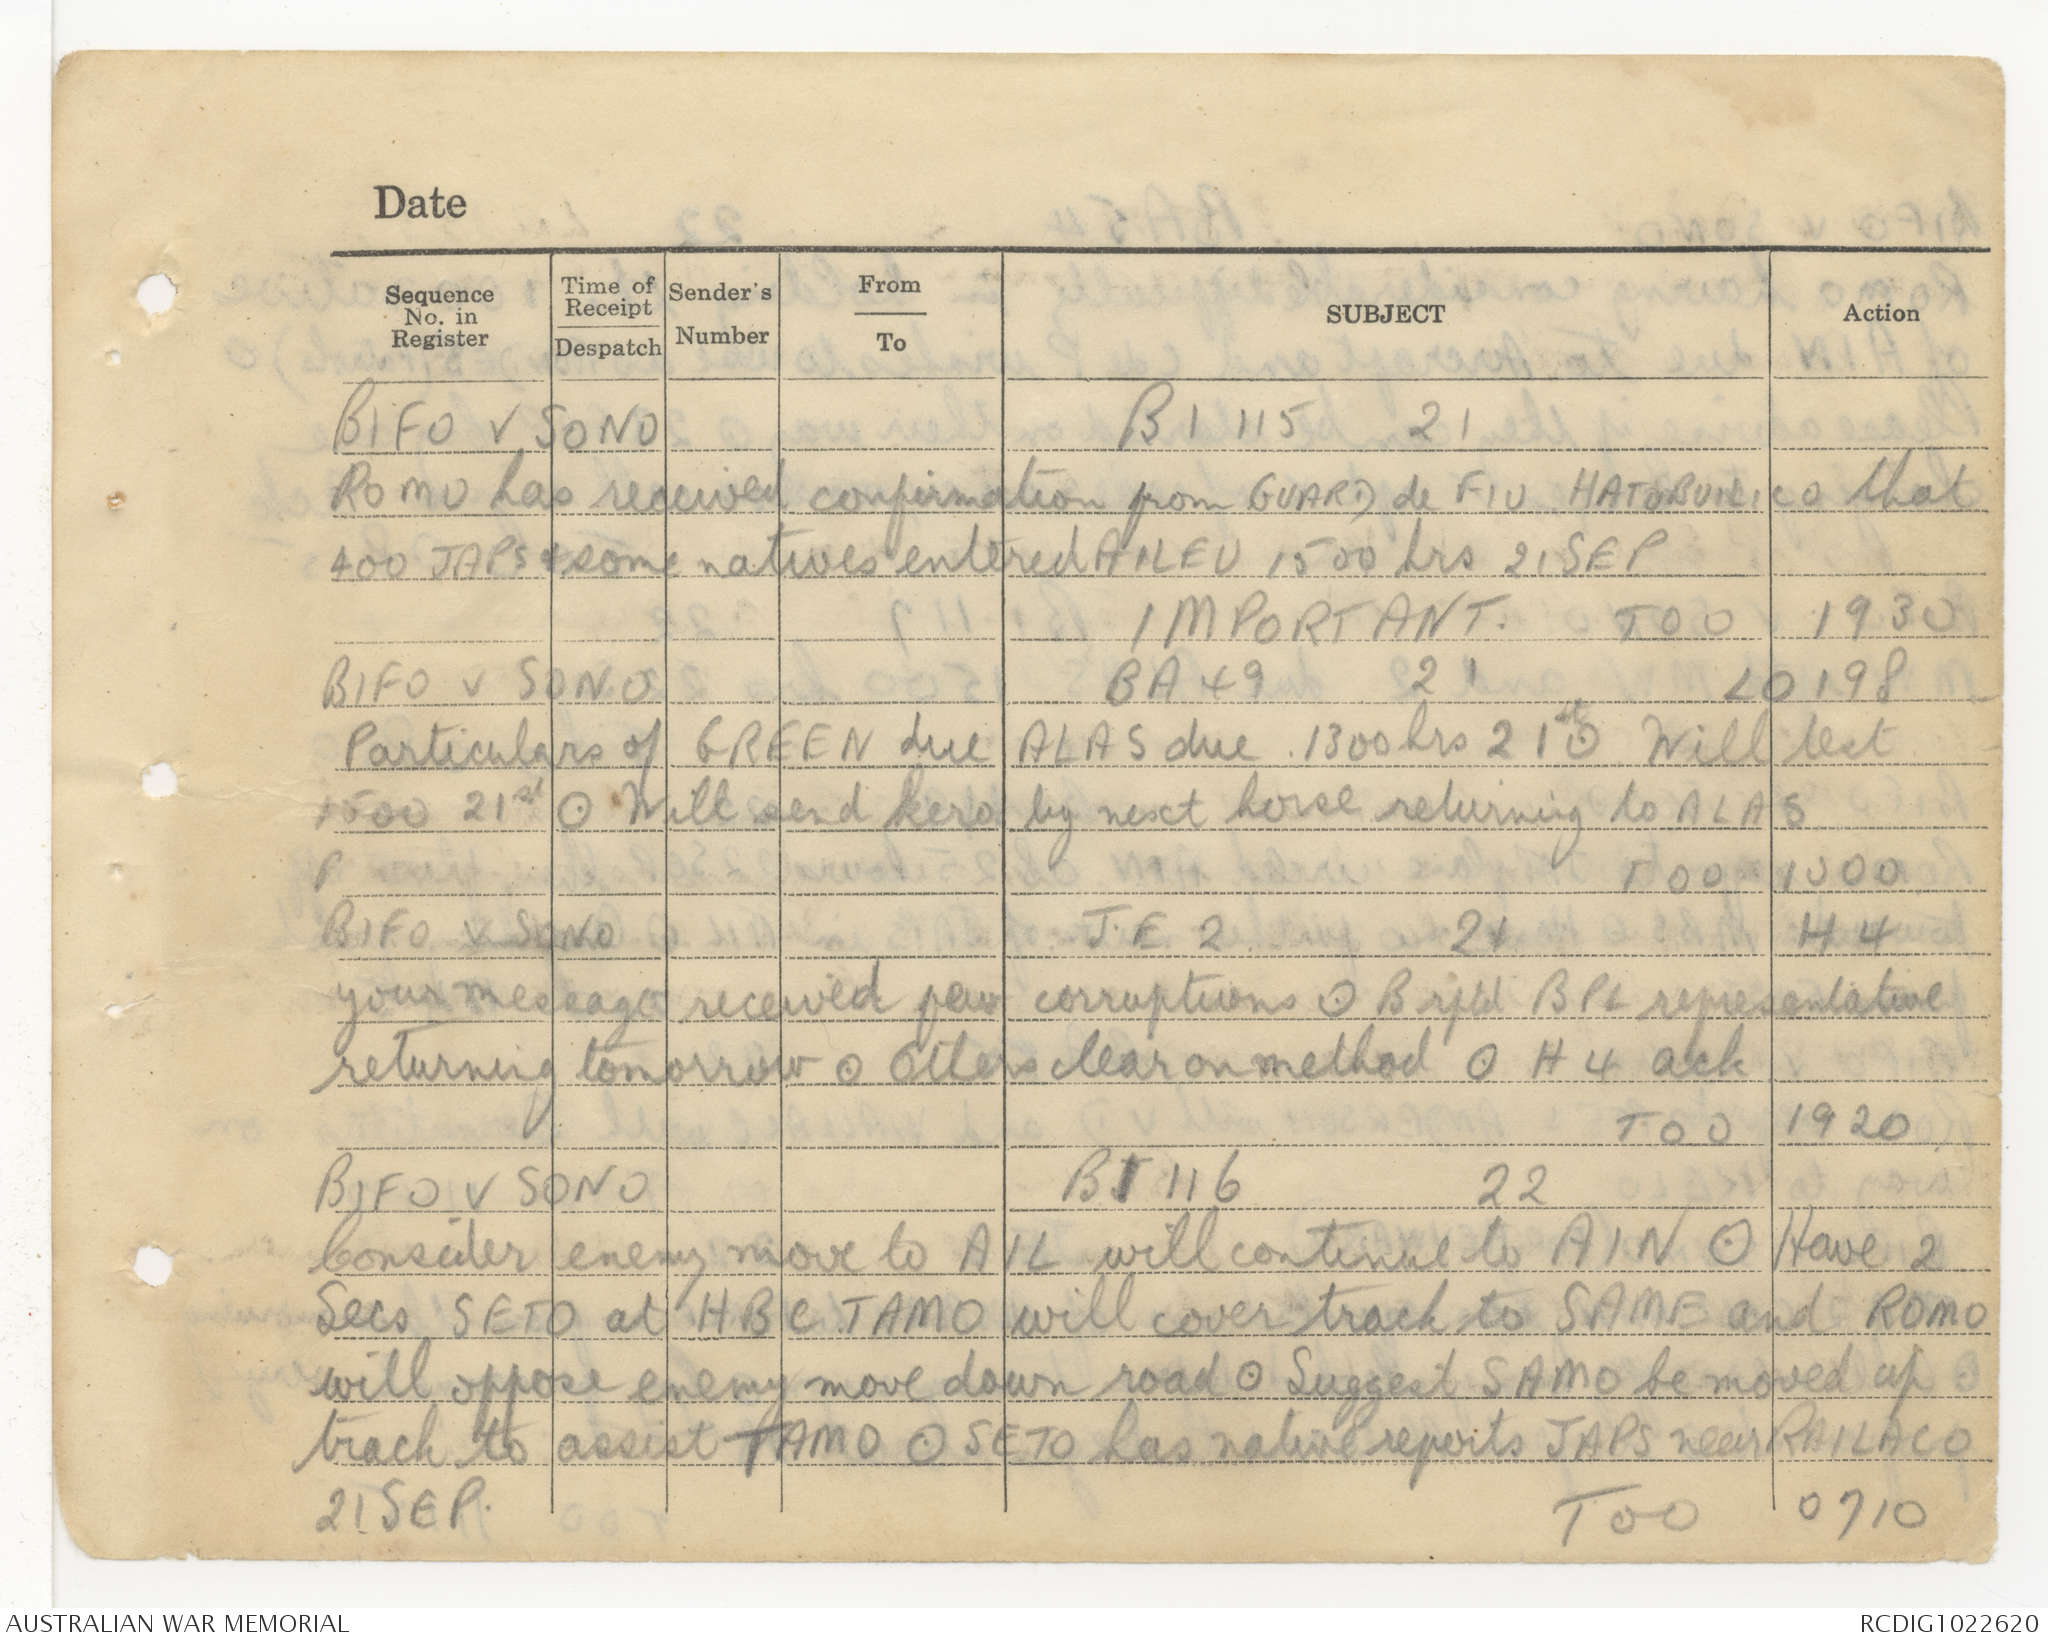 Date
Sequence No. in Register
Time of Receipt
Despatch
Sender's Number
From
To
SUBJECT
Action
BIFO V SONO B1 115 21
ROMO has received confirmation from GUARD de FIU HATUBUILICO that
400 JAPS & some natives entered AILEU 1500 hrs 21 SEP
IMPORTANT. TOO 1930
BIFO V SONO BA 49 21 LO 198
Particulars of GREEN due ALAS due 1300 hrs 21st ⊙ Will test
1500 21st ⊙ Will send kero by next horse returning to ALAS
P TOO 1000
BIFO V SONO J.E 2 21 H 4
your message received few corruptions ⊙ B rptd BPL representative
returning tomorrow ⊙ Others clear on method ⊙ H 4 ack
TOO 1920
BIFO V SONO BI 116 22
Consider enemy move to AIL will continue to AIN ⊙ Have 2
Secs SETO at HBC TAMO will cover track to SAME and ROMO
will oppose enemy move down road ⊙ Suggest SAMO be moved up
track to assist TAMO ⊙ SETO has native reports JAPS near RAILACO
21 SEP. TOO 0710
AUSTRALIAN WAR MEMORIAL RCDIG1022620